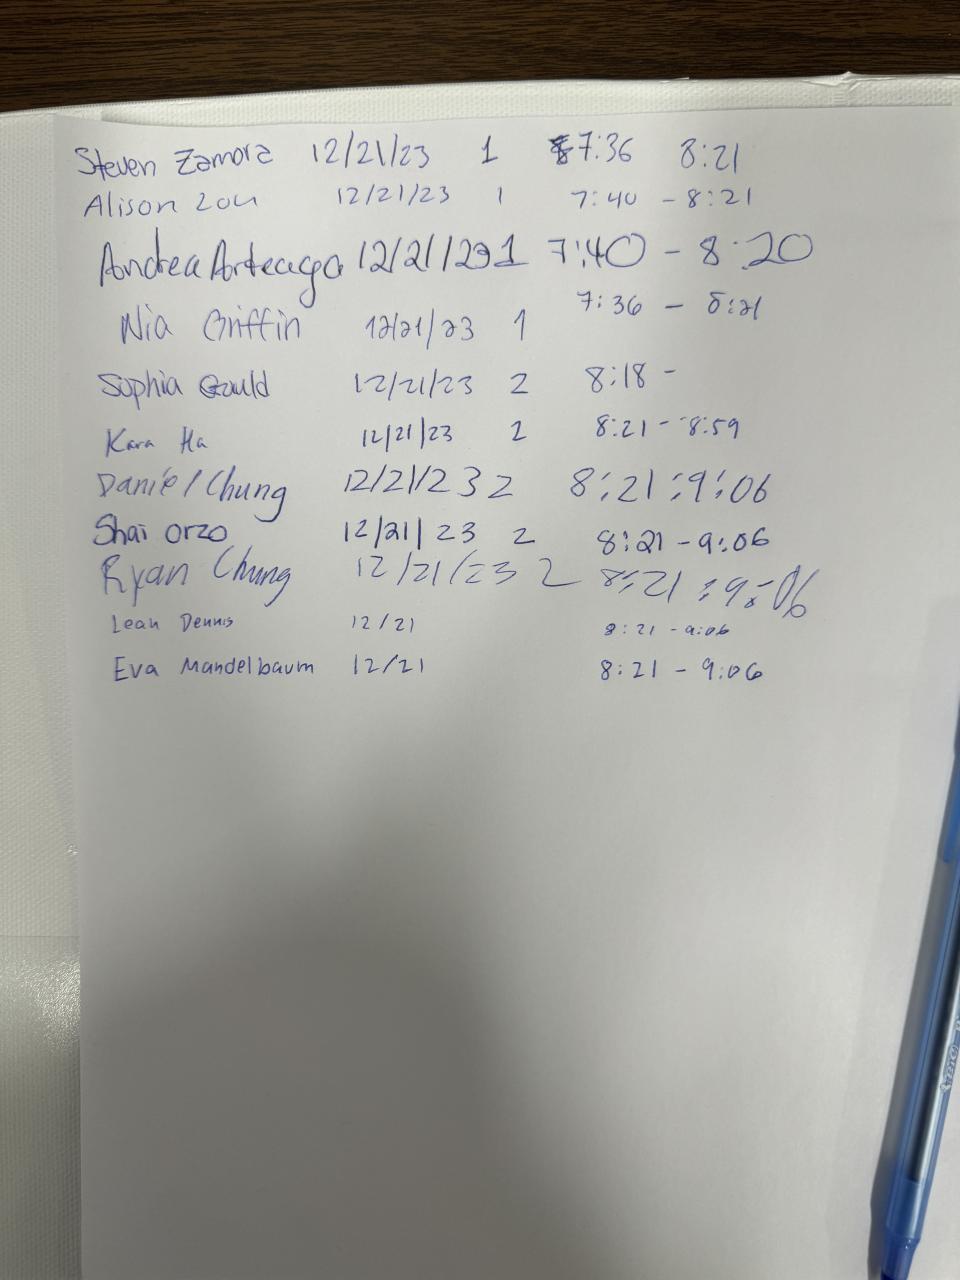 Steven Zamora 12/21/23 1 7:36 8:21
Alison Zou 12/21/23 1 7:40 - 8:21
Andrea Arteaga 12/21/23 1 7:40 - 8:20
Nia Griffin 12/21/23 1 7:36 - 8:21
Sophia Gould 12/21/23 2 8:18 -
Kara Ha 12/21/23 2 8:21 - 8:59
Daniel Chung 12/21/23 2 8:21 : 9:06
Shai Orzo 12/21/23 2 8:21 - 9:06
Ryan Chung 12/21/23 2 8:21 : 9:06
Leah Dennis 12/21 8:21 - 9:06
Eva Mandelbaum 12/21 8:21 - 9:06